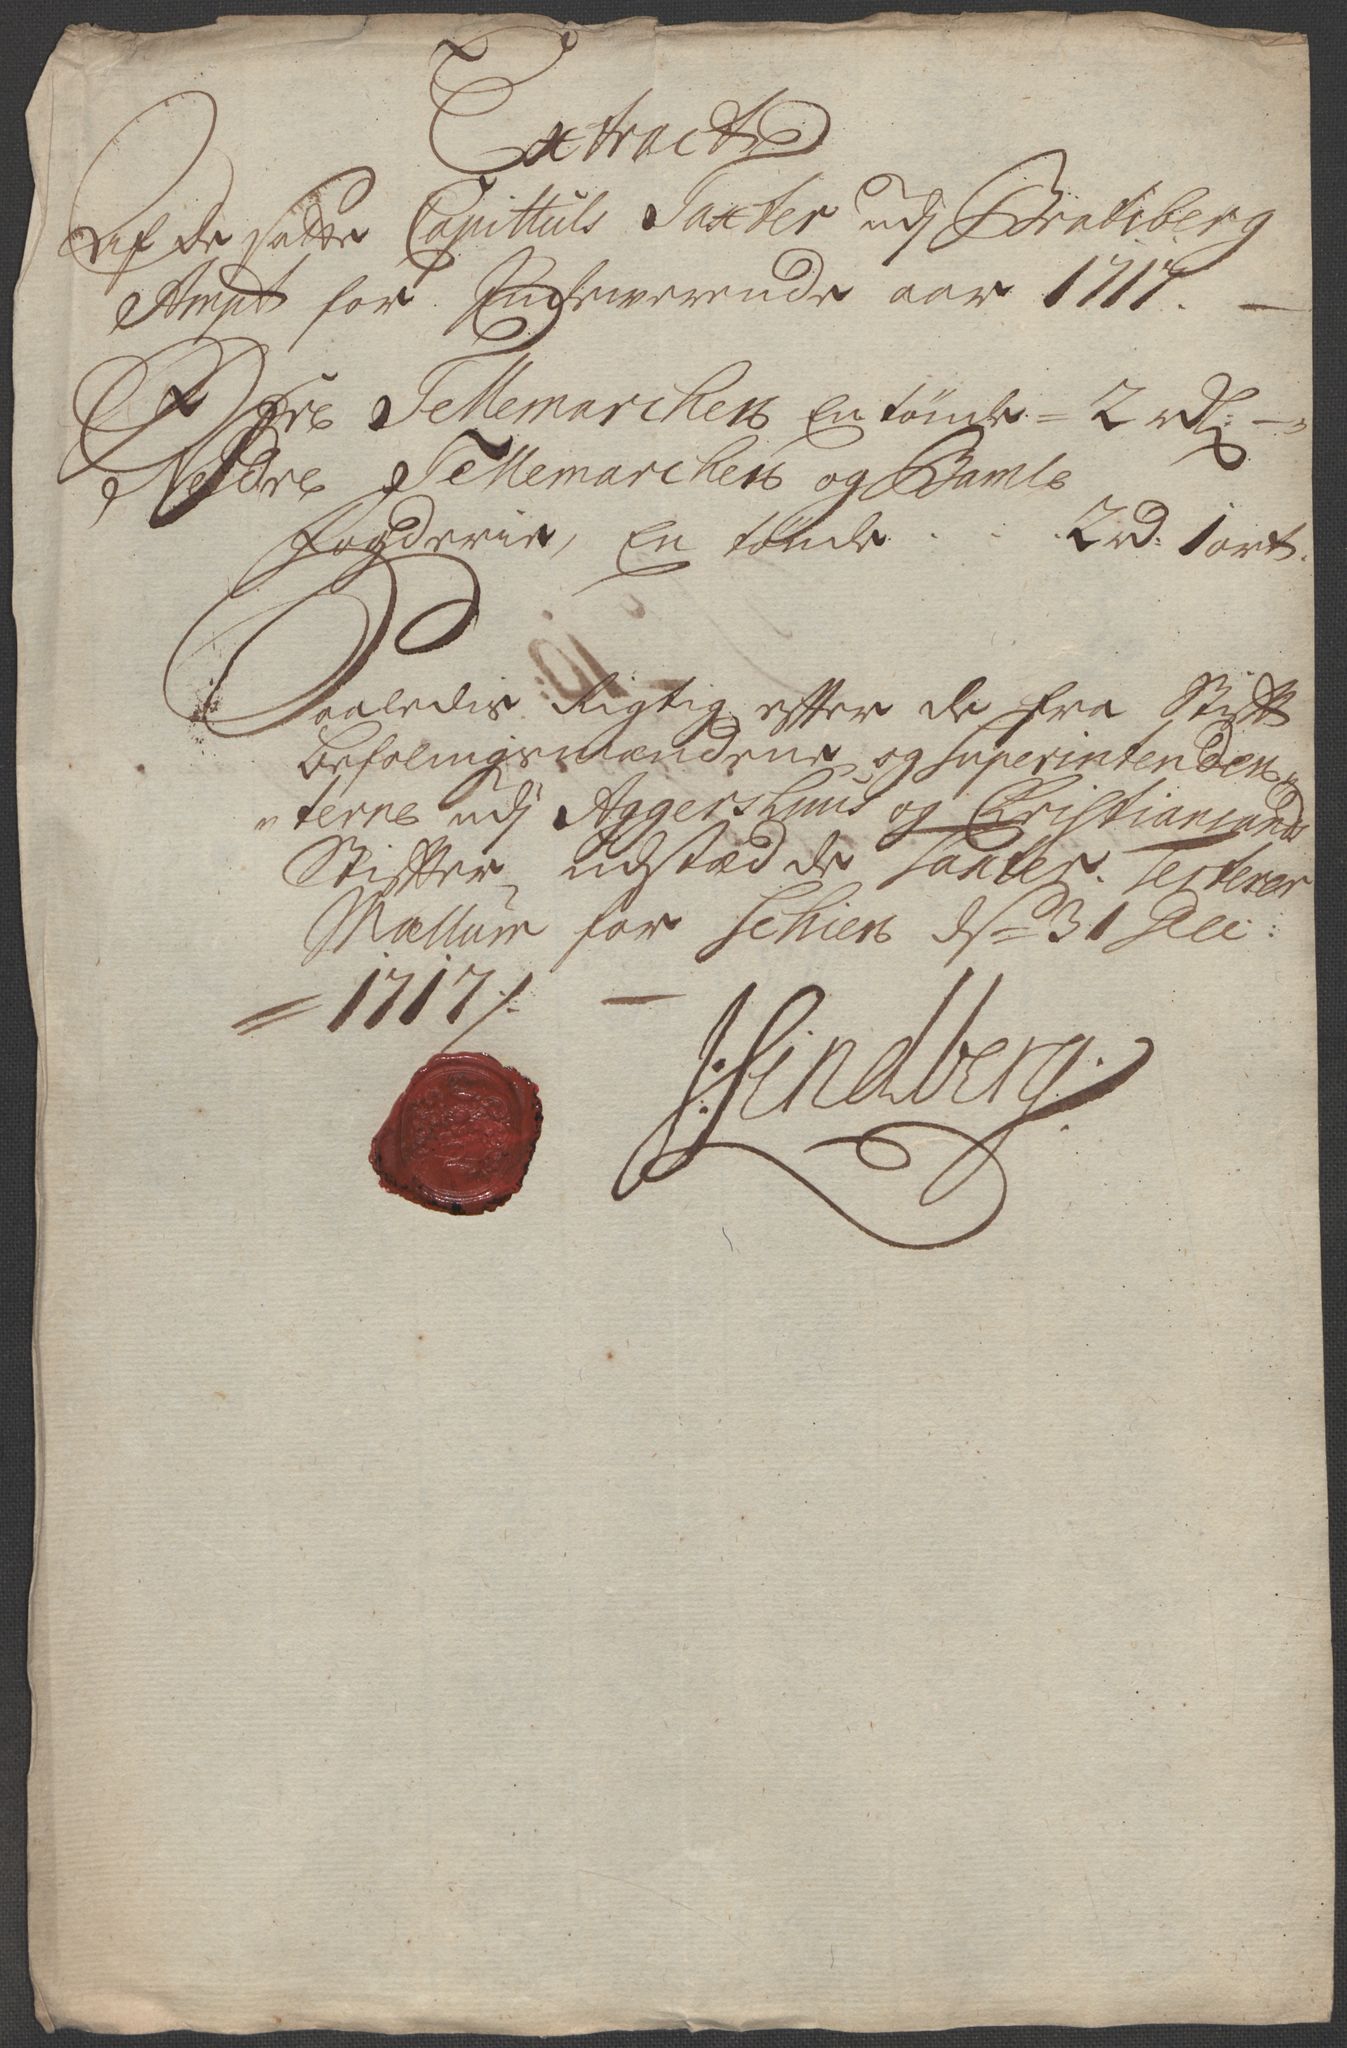 Extract
Af de satte Capittuls Taxter udj Bratsberg
Ampt for Indeverende aar 1717. —
Øfre Tellemarchen En tönde = 2 rdr: —
Nedre Tellemarchen og Bamle
fogderie, En tönde . . . 2 rd: 1 ort.
Saaledis Rigtig efter de fra Stift
befalingsmændene og Superintenden„
„terne udj Aggershuus og Christiansands
Stifter, udstædde taxter. Testerer
Mællum for Schien dn 31 Dec:
= 1717 /. —
J: Lindberg.